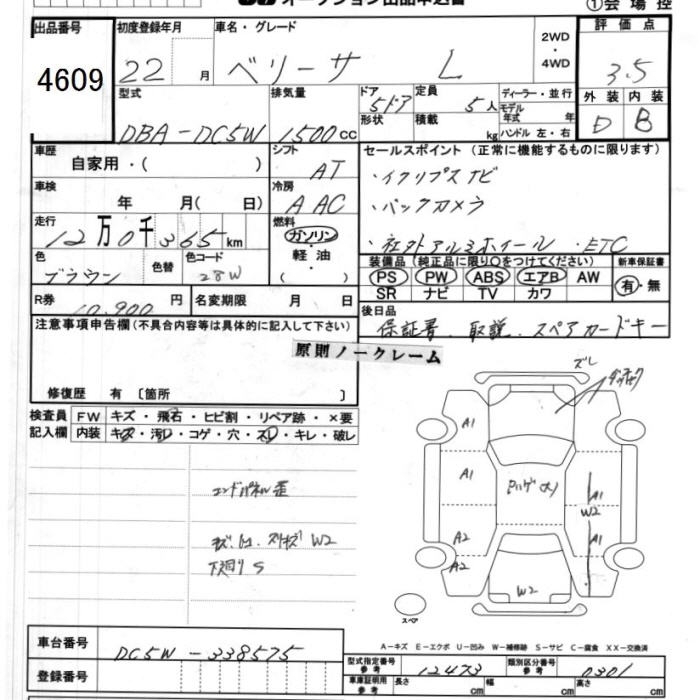 オークション出品申込書
①会場控
出品番号
4609
初度登録年月
22 月
車名・グレード
ベリーサ L
2WD
・
4WD
評価点
3.5
外装 内装
D B
型式
DBA-DC5W
排気量
1500cc
ドア
5ドア
形状
定員
5人
積載
kg
ディーラー・並行
モデル年式 年
ハンドル 左・右
車歴
自家用・( )
シフト
AT
セールスポイント (正常に機能するものに限ります)
・イクリプスナビ
・バックカメラ
・社外アルミホイール ・ETC
車検
年 月( 日)
冷房
AAC
走行
12万0千365km
燃料
ガソリン
・
軽油
・( )
色
ブラウン
色替
色コード
28W
装備品 (純正品に限り○をつけてください)
PS PW ABS エアB AW
SR ナビ TV カワ
新車保証書
有・無
R券
10,900 円
名変期限 月 日
後日品
保証書、取説、スペアカードキー
注意事項申告欄(不具合内容等は具体的に記入して下さい)
原則ノークレーム
修復歴 有 〔箇所 〕
検査員記入欄
FW キズ・飛石・ヒビ割・リペア跡・×要
内装 キズ・汚レ・コゲ・穴・スレ・キレ・破レ
エンドパネル歪
W2
下廻りS
ズレ
A1
A1
A1
W2
A2
A2
W2
スペア
A-キズ E-エクボ U-凹み W-補修跡 S-サビ C-腐食 XX-交換済
車台番号
DC5W-338575
型式指定番号
参考
12473
類別区分番号
参考
0301
登録番号
車庫証明用
参考
長さ cm
幅 cm
高さ cm